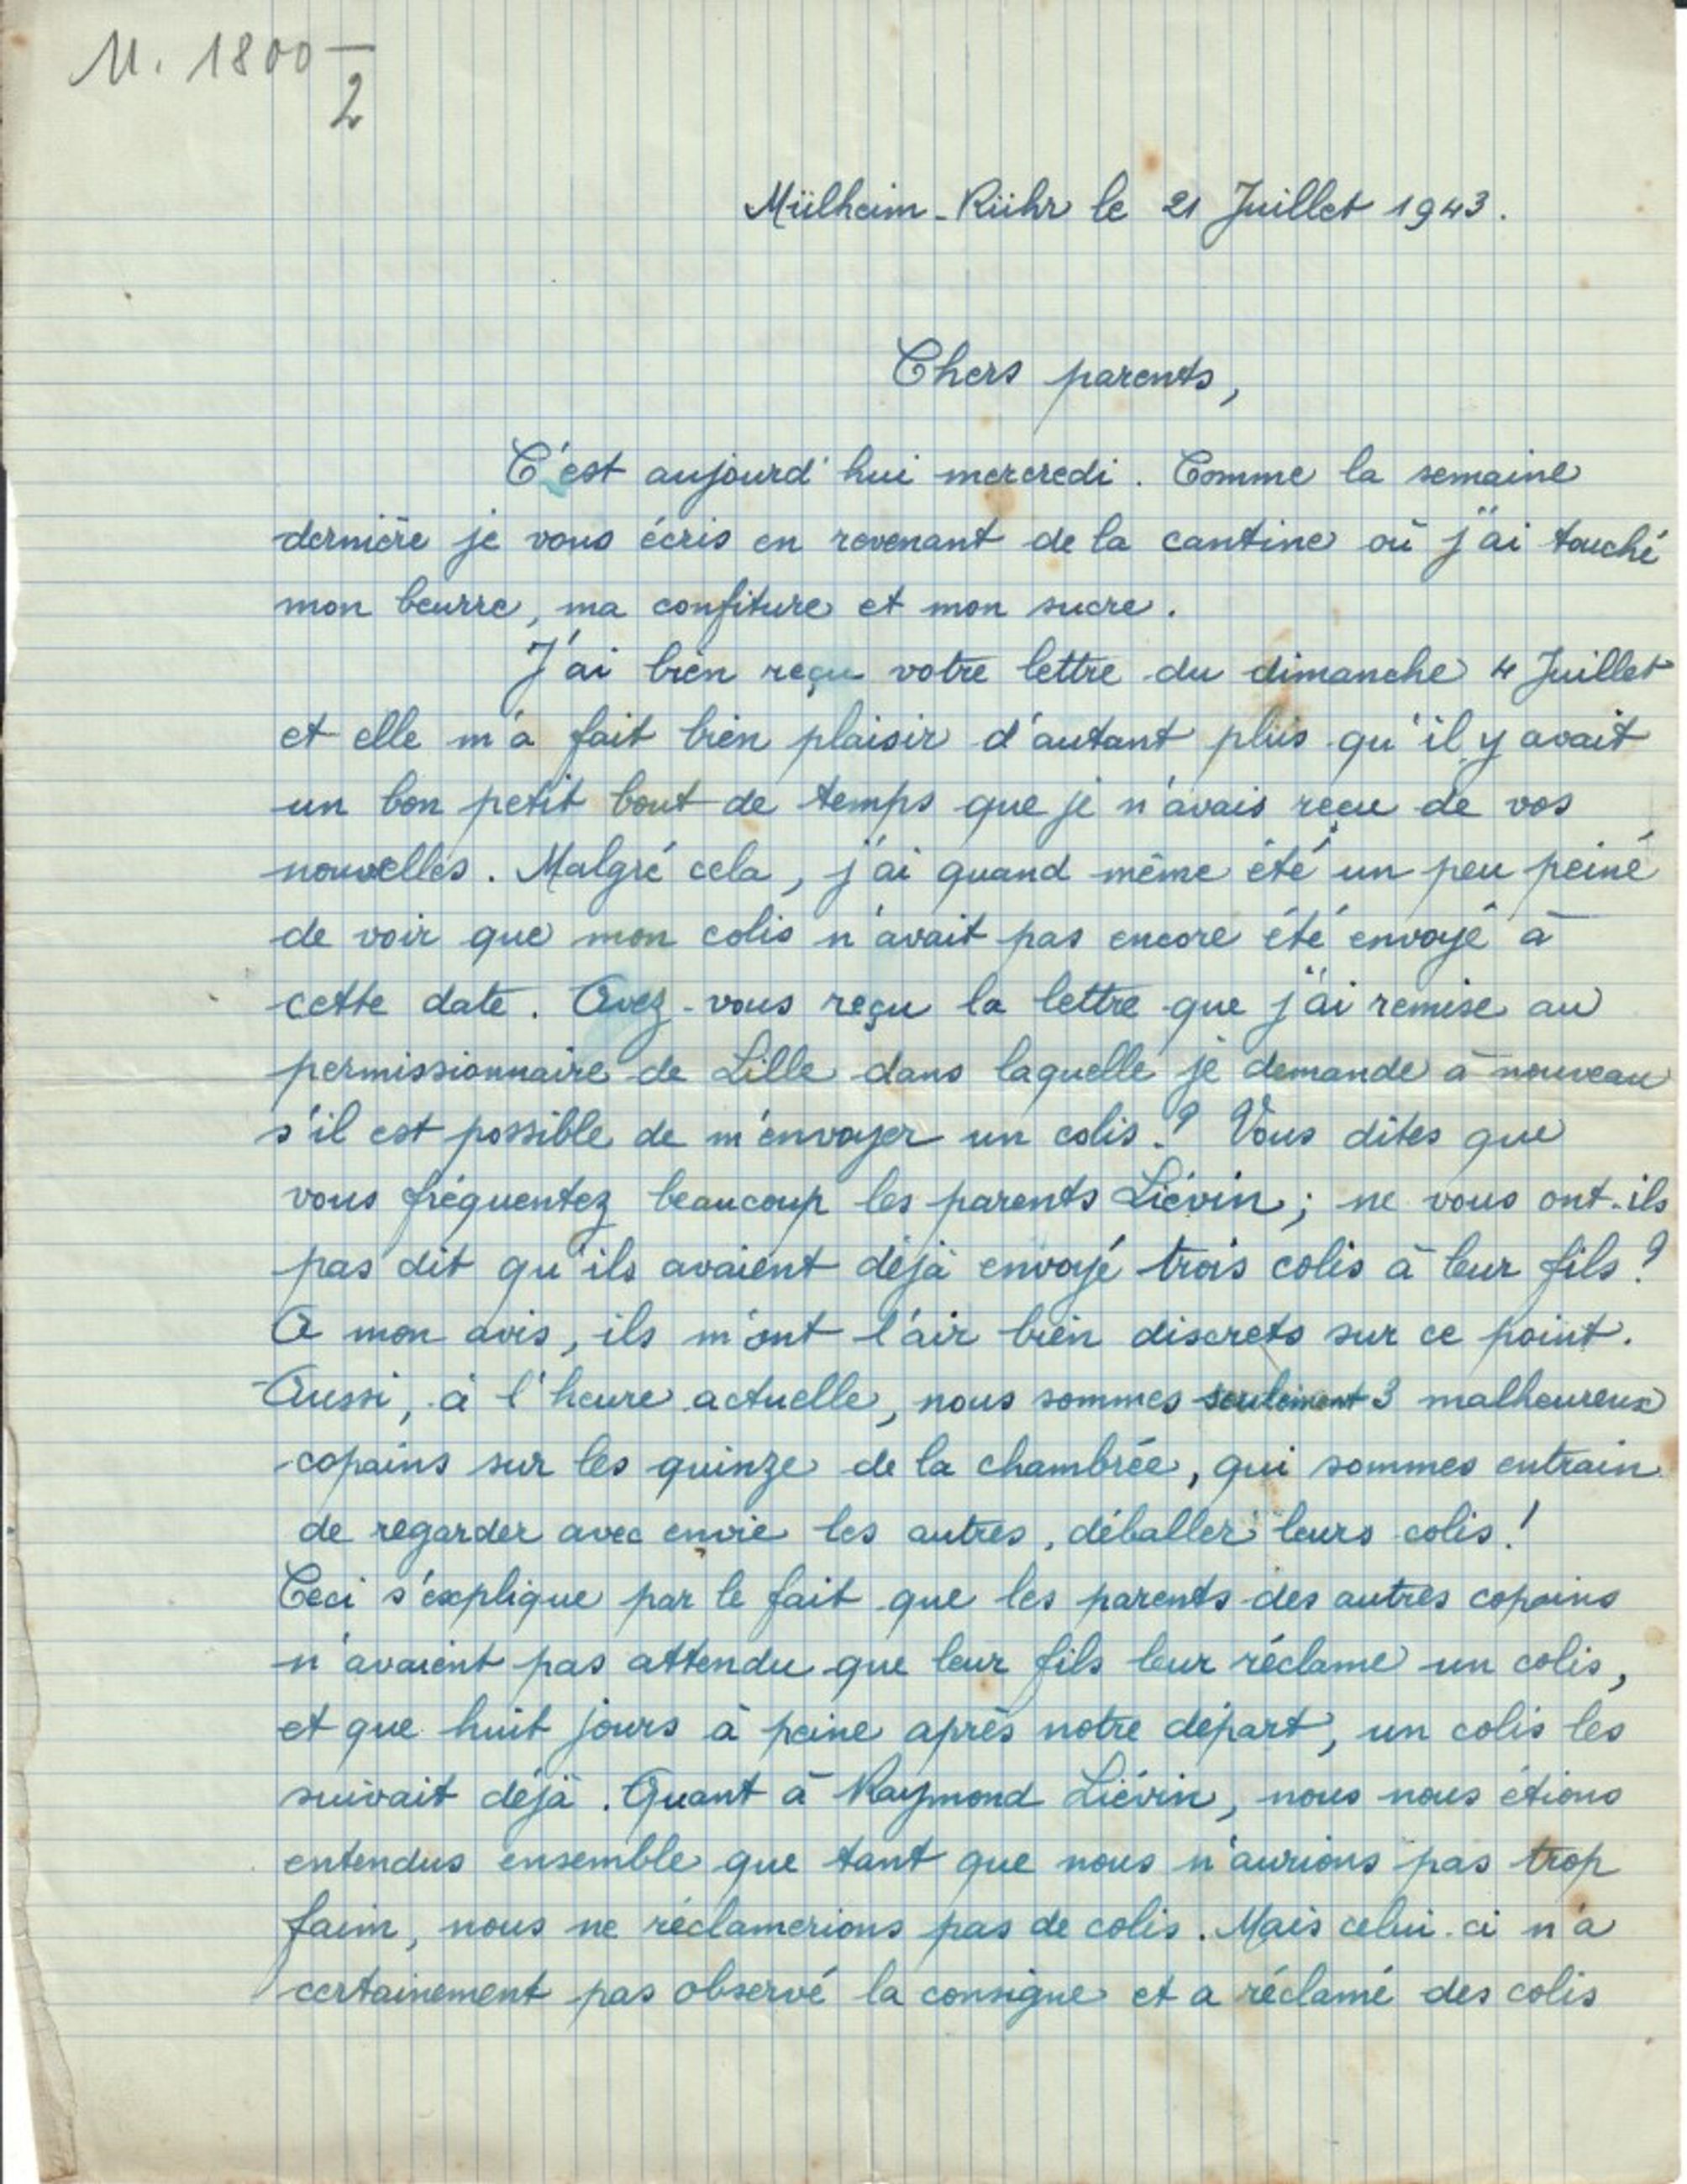 M. 1800
2
Mülheim-Rühr le 21 Juillet 1943.
Chers parents,
C'est aujourd'hui mercredi. Comme la semaine
dernière je vous écris en revenant de la cantine où j'ai touché
mon beurre, ma confiture et mon sucre.
J'ai bien reçu votre lettre du dimanche 4 Juillet
et elle m'a fait bien plaisir d'autant plus qu'il y avait
un bon petit bout de temps que je n'avais reçu de vos
nouvelles. Malgré cela, j'ai quand même été un peu peiné
de voir que mon colis n'avait pas encore été envoyé à
cette date. Avez-vous reçu la lettre que j'ai remise au
permissionnaire de Lille dans laquelle je demande à nouveau
s'il est possible de m'envoyer un colis? Vous dites que
vous fréquentez beaucoup les parents Liévin; ne vous ont-ils
pas dit qu'ils avaient déjà envoyé trois colis à leur fils?
A mon avis, ils m'ont l'air bien discrets sur ce point.
Aussi, à l'heure actuelle, nous sommes seulement 3 malheureux
copains sur les quinze de la chambrée, qui sommes entrain
de regarder avec envie les autres, déballer leurs colis!
Ceci s'explique par le fait que les parents des autres copains
n'avaient pas attendu que leur fils leur réclame un colis,
et que huit jours à peine après notre départ, un colis les
suivait déjà. Quant à Raymond Liévin, nous nous étions
entendus ensemble que tant que nous n'aurions pas trop
faim, nous ne réclamerions pas de colis. Mais celui-ci n'a
certainement pas observé la consigne et a réclamé des colis